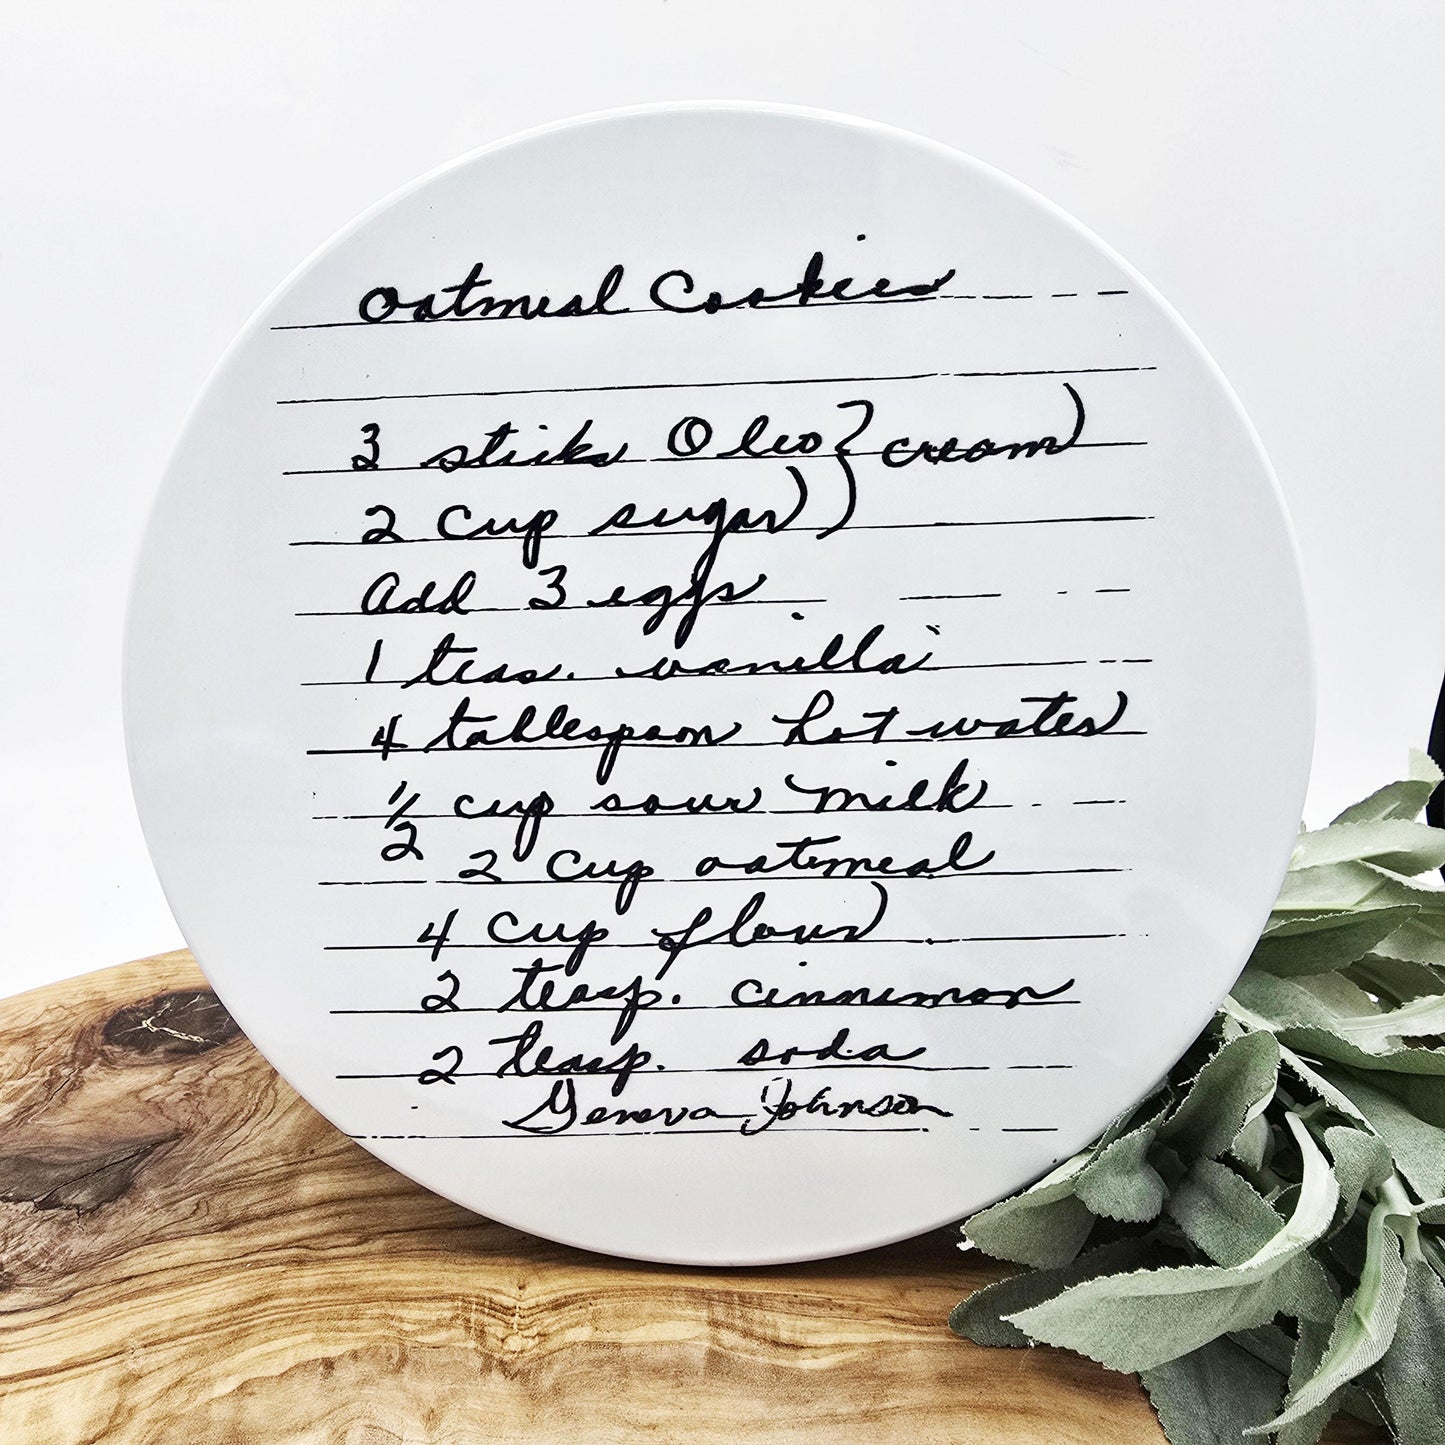 Oatmeal Cookies
3 sticks Oleo } cream)
2 cup sugar) )
Add 3 eggs
1 teas. vanilla
4 tablespoon hot water
1/2 cup sour milk
2 cup oatmeal
4 cup flour
2 teasp. cinnimon
2 teasp. soda
Geneva Johnson